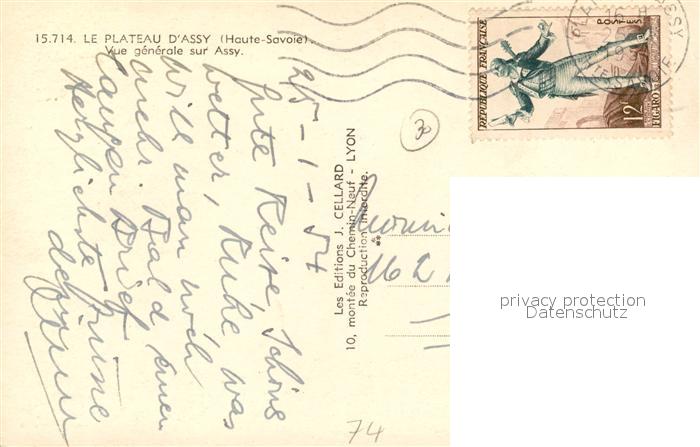 15.714. LE PLATEAU D'ASSY (Haute-Savoie).
Vue générale sur Assy.
25-1-54
Gute Reise, Schöns
Wetter, Ruhe was
will man noch
mehr. Bald einen
langen Brief
Herzlichste Grüsse
Les Editions J. CELLARD
10, montée du Chemin-Neuf - LYON
Reproduction interdite.
30
RÉPUBLIQUE FRANÇAISE
POSTES
12F
FIGARO
privacy protection
Datenschutz
74